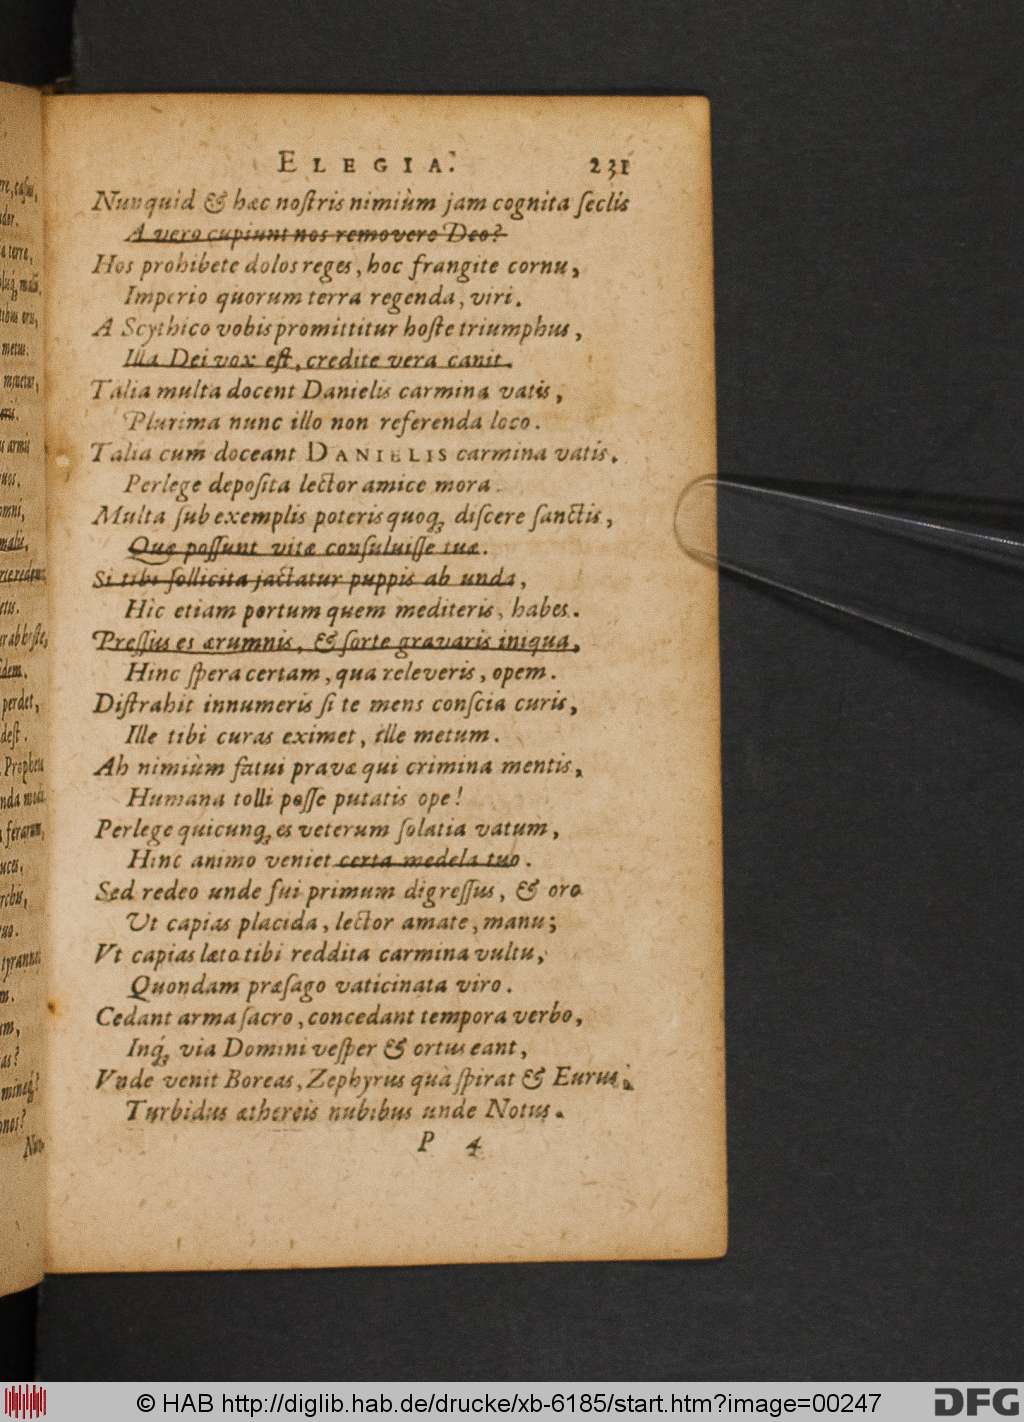 ELEGIA. 231
Nunquid & hæc noſtris nimiùm jam cognita ſeclis
A vero cupiunt nos removere Deo?
Hos prohibete dolos reges, hoc frangite cornu,
Imperio quorum terra regenda, viri.
A Scythico vobis promittitur hoſte triumphus,
Illa Dei vox eſt, credite vera canit.
Talia multa docent Danielis carmina vatis,
Plurima nunc illo non referenda loco.
Talia cum doceant DANIELIS carmina vatis.
Perlege depoſita lector amice mora.
Multa ſub exemplis poteris quoq; diſcere ſanctis,
Quæ poſſunt vitæ conſuluiſſe tuæ.
Si tibi ſollicita jactatur puppis ab unda,
Hìc etiam portum quem mediteris, habes.
Preſſius es ærumnis, & ſorte gravaris iniqua,
Hinc ſpera certam, qua releveris, opem.
Diſtrahit innumeris ſi te mens conſcia curis,
Ille tibi curas eximet, ille metum.
Ah nimiùm fatui pravæ qui crimina mentis,
Humana tolli poſſe putatis ope!
Perlege quicunq; es veterum ſolatia vatum,
Hinc animo veniet certa medela tuo.
Sed redeo unde fui primum digreſſus, & oro
Ut capias placida, lector amate, manu;
Vt capias læto tibi reddita carmina vultu,
Quondam præſago vaticinata viro.
Cedant arma ſacro, concedant tempora verbo,
Inq; via Domini veſper & ortus eant,
Vnde venit Boreas, Zephyrus quà ſpirat & Eurus,
Turbidus æthereis nubibus unde Notus.
P 4
© HAB http://diglib.hab.de/drucke/xb-6185/start.htm?image=00247
DFG